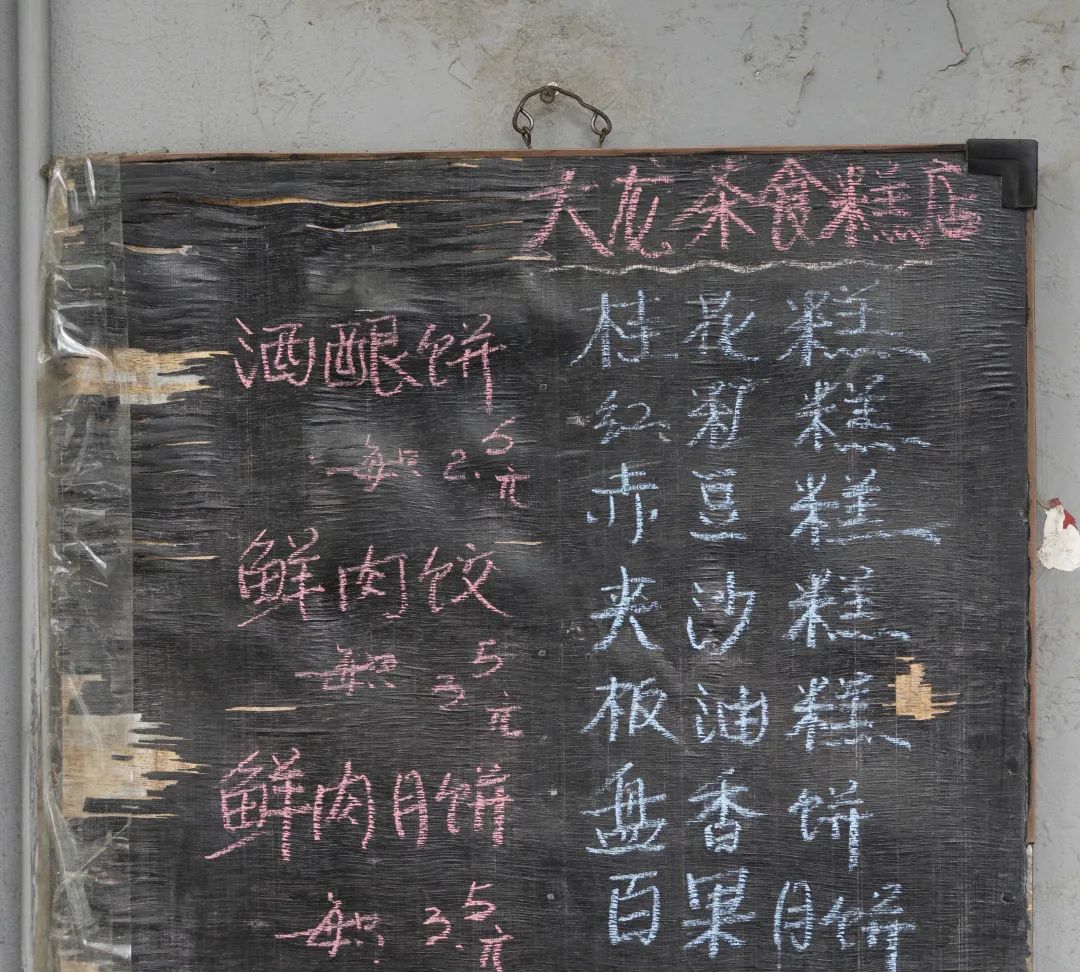 大茶食糕店
酒酿饼
每只 2.5元
鲜肉饺
每只 3.5元
鲜肉月饼
每只 3.5元
桂花糕
红糕
赤豆糕
夹沙糕
板油糕
盘香饼
百果月饼